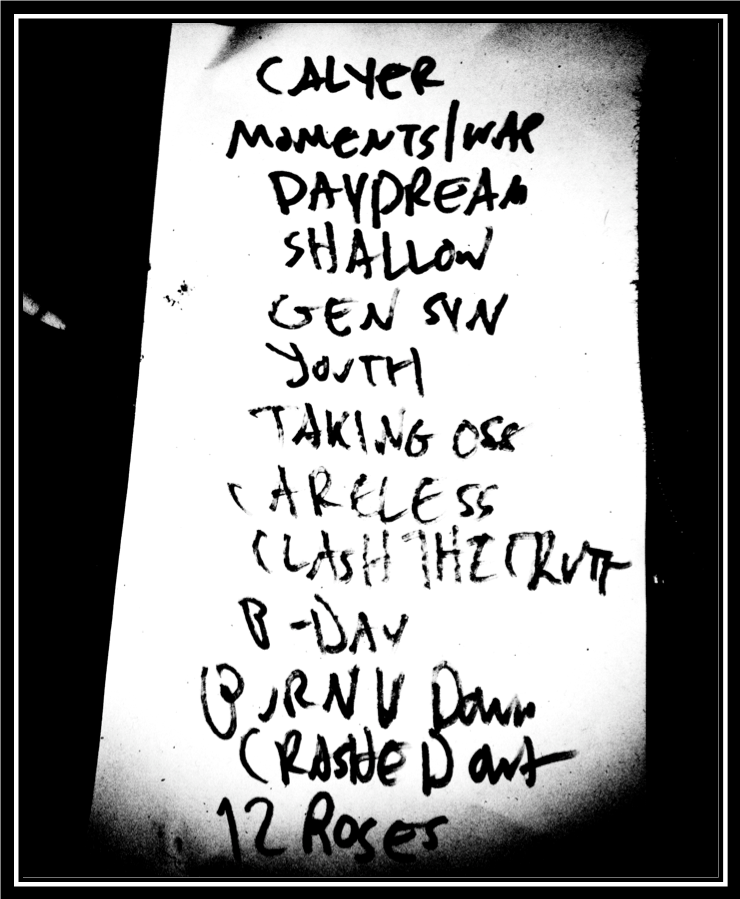 CALYER
MOMENTS/WAR
DAYDREAM
SHALLOW
GEN SYN
YOUTH
TAKING OSS
CARELESS
CLASH THE TRUTH
B-DAY
BURN U Down
CRASHED out
12 Roses